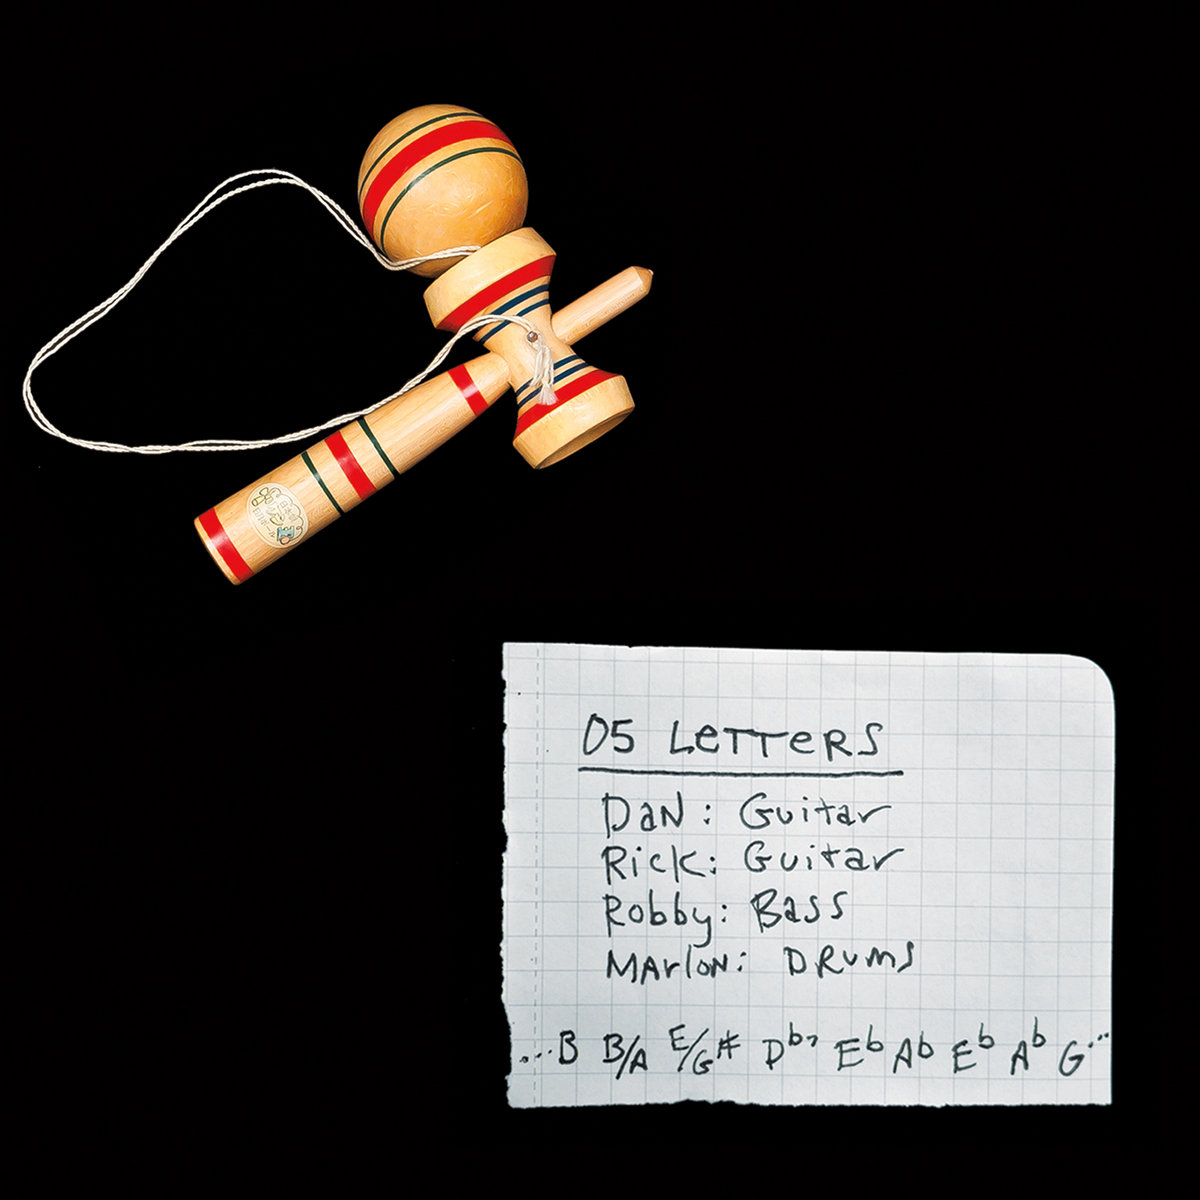 日本の
けん玉
日刀ホール
05 LeTTeRS
DaN: Guitar
Rick: Guitar
Robby: Bass
MArloN: DRums
...B B/A E/G# Db7 Eb Ab Eb Ab G...